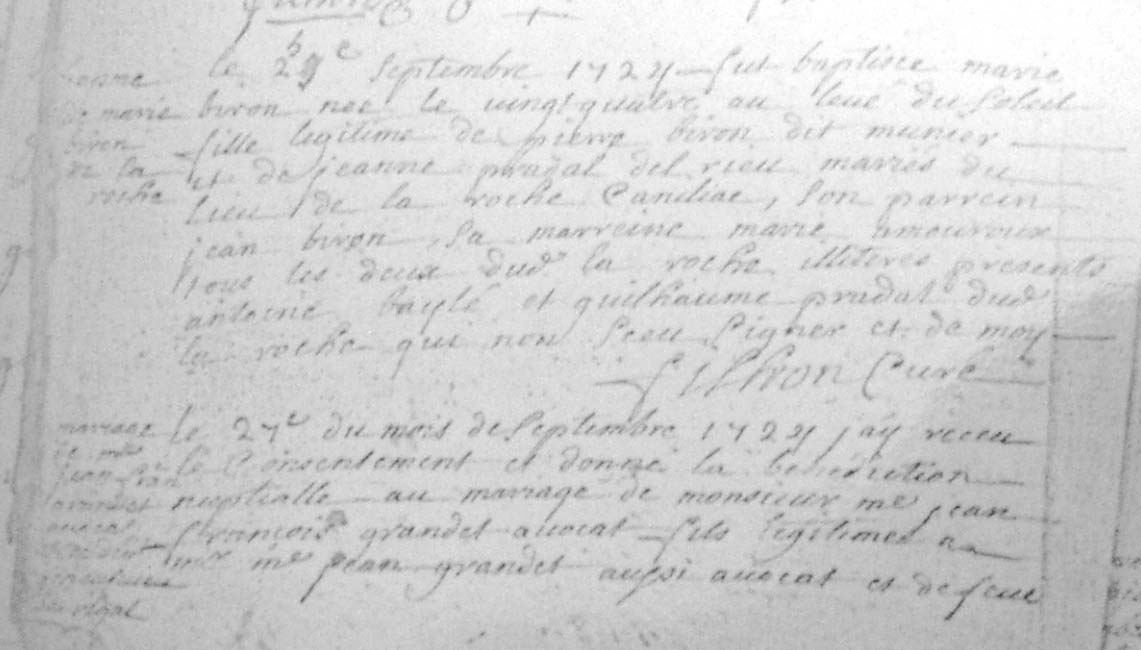 bapteme
de marie
biron
de la
roche
le 25e septembre 1724 fut baptisee marie
biron nee le vingt quatre au leué du soleil
fille legitime de pierre biron dit munier
et de jeanne pradal del rieu mariés du
lieu de la roche Canillac, son parrein
jean biron, sa marreine marie amouroux
tous les deux dud. la roche illiteres presents
antoine baylé et guilhaume pradal dud.
la roche qui non sceu signer et de moy
curé
mariage
de me
jean fran
grandet
auocat
rigal
le 27e du mois de septembre 1724 jay receu
le consentement et donné la benediction
nuptialle au mariage de monsieur me jean
françois grandet auocat fils legitime a
mr me jean grandet aussi auocat et de feue